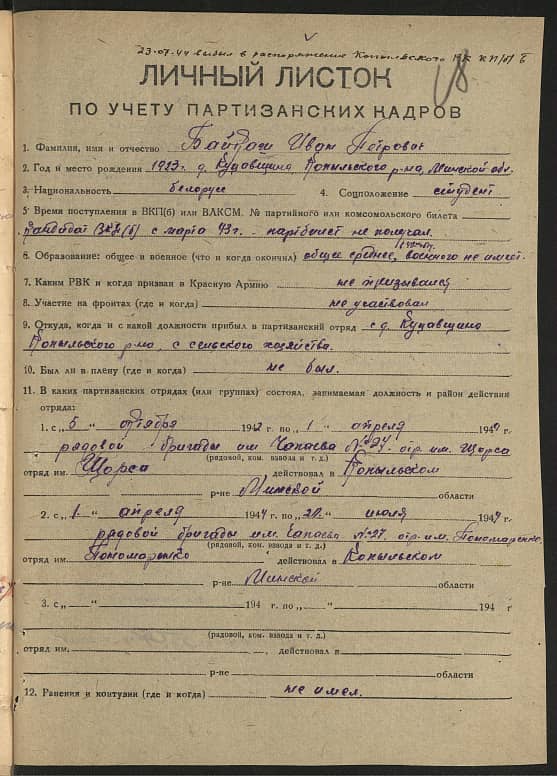 23-07-44 выбыл в распоряжение Копыльского РК КП(б)Б
ЛИЧНЫЙ ЛИСТОК
ПО УЧЕТУ ПАРТИЗАНСКИХ КАДРОВ
1. Фамилия, имя и отчество Иван Петрович
2. Год и место рождения 1923 г. д. Кунавщина Копыльского р-на, Минской обл.
3. Национальность белорусс 4. Соцположение студент
5. Время поступления в ВКП(б) или ВЛКСМ. № партийного или комсомольского билета
Кандидат ВКП(б) с марта 43 г. - партбилет не получал.
6. Образование: общее и военное (что и когда окончил) общее среднее, военного не имеет.
7. Каким РВК и когда призван в Красную Армию не призывался
8. Участие на фронтах (где и когда) не участвовал
9. Откуда, когда и с какой должности прибыл в партизанский отряд с д. Кунавщина
Копыльского р-на, с сельского хозяйства.
10. Был ли в плену (где и когда) не был.
11. В каких партизанских отрядах (или группах) состоял, занимаемая должность и район действия
отряда:
1. с „5 “ 1942 г. по „1 “ апреля 1944 г.
рядовой бригады им. Чапаева № 27. отр. им. Щорса
(рядовой, ком. взвода и т. д.)
отряд им. Щорса действовал в Копыльском
р-не Минской области
2. с „1 “ апреля 1944 г. по „20 “ июля 1944 г.
рядовой бригады им. Чапаева № 27. отр. им. Пономаренко
(рядовой, ком. взвода и т. д.)
отряд им. Пономаренко действовал в Копыльском
р-не Минской области
3. с „ “ 194 г. по „ “ 194 г
(рядовой, ком. взвода и т. д.)
отряд им. , действовал в
р-не области
12. Ранения и контузии (где и когда) не имел.